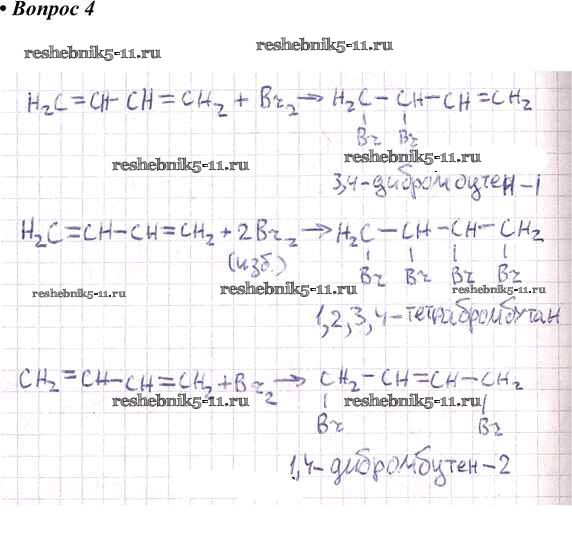 • Вопрос 4
reshebnik5-11.ru reshebnik5-11.ru
H₂C=CH-CH=CH₂ + Br₂ → H₂C-CH-CH=CH₂
Br Br
reshebnik5-11.ru reshebnik5-11.ru
3,4-дибромбутен-1
H₂C=CH-CH=CH₂ + 2Br₂ → H₂C-CH-CH-CH₂
(изб.) Br Br Br Br
reshebnik5-11.ru reshebnik5-11.ru reshebnik5-11.ru
1,2,3,4-тетрабромбутан
CH₂=CH-CH=CH₂ + Br₂ → CH₂-CH=CH-CH₂
reshebnik5-11.ru reshebnik5-11.ru
Br Br
1,4-дибромбутен-2